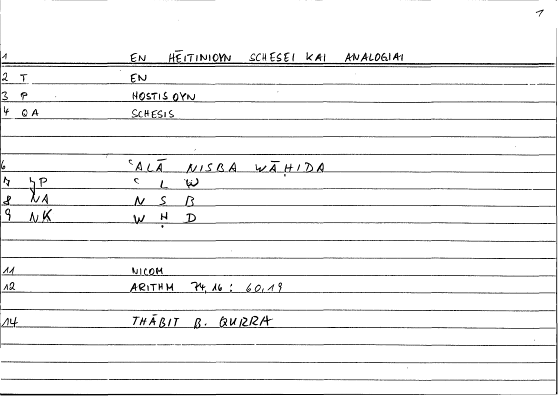 1
1 EN HĒITINIOYN SCHESEI KAI ANALOGIAI
2 T EN
3 P HOSTISOYN
4 QA SCHESIS
6 ʿALĀ NISBA WĀḤIDA
7 YP ʿ L W
8 NA N S B
9 NK W Ḥ D
11 NICOM
12 ARITHM 74,16 : 60,19
14 THĀBIT B. QURRA